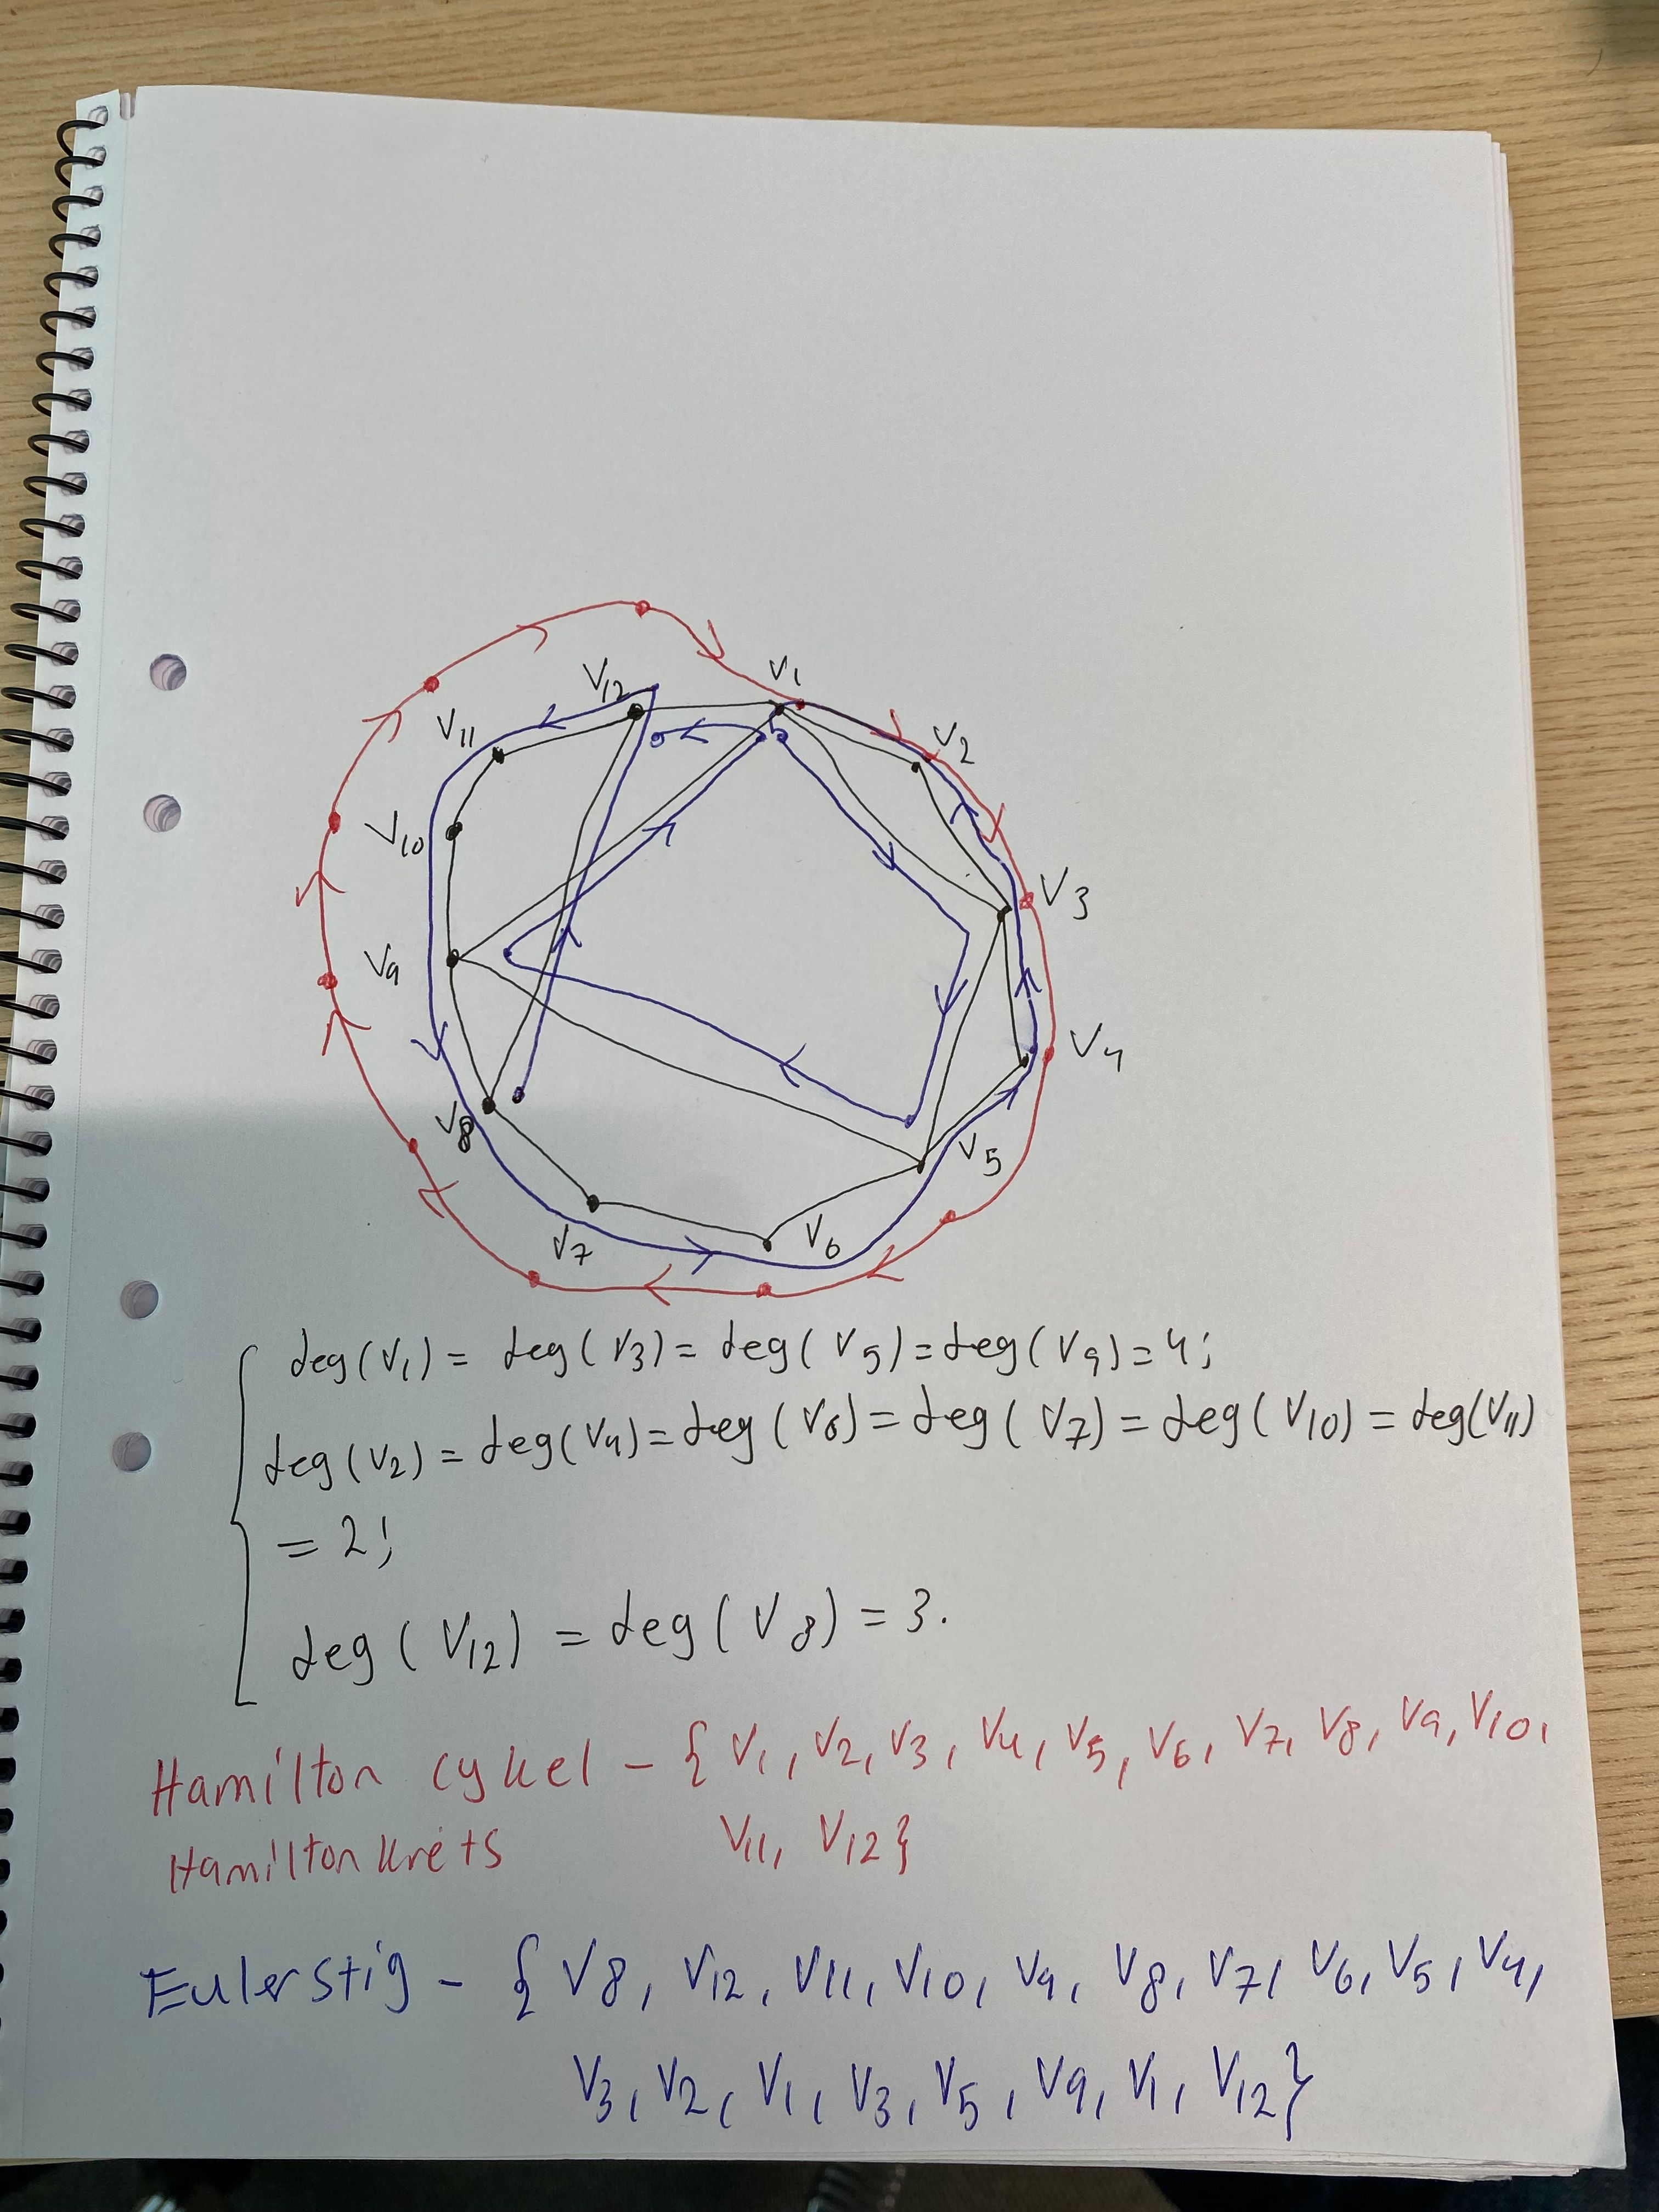 V12 V1
V11 V2
V10 V3
V9 V4
V8 V5
V7 V6
deg(V1) = deg(V3) = deg(V5) = deg(V9) = 4;
deg(V2) = deg(V4) = deg(V6) = deg(V7) = deg(V10) = deg(V11)
= 2;
deg(V12) = deg(V8) = 3.
Hamilton cykel - {V1, V2, V3, V4, V5, V6, V7, V8, V9, V10,
Hamilton krets V11, V12}
Eulerstig - {V8, V12, V11, V10, V9, V8, V7, V6, V5, V4,
V3, V2, V1, V3, V5, V9, V1, V12}